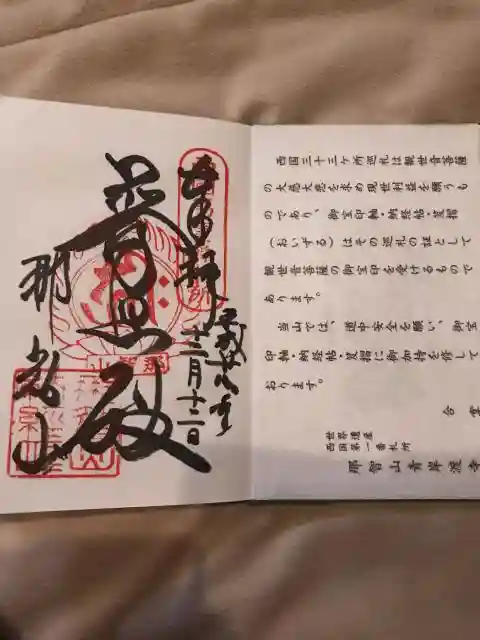 西国三十三ケ所巡礼は観世音菩薩
の大慈大悲を求め現世利益を願うも
のであり、御宝印軸・納経帖・笈摺
（おいずる）はその巡礼の証として
観世音菩薩の御宝印を受けるもので
あります。
当山では、道中安全を願い、御宝
印軸・納経帖・笈摺に御加持を修して
おります。
合掌
世界遺産
西国第一番札所
那智山青岸渡寺
奉拝
十二月十二日
普照殿
那智山
那智山